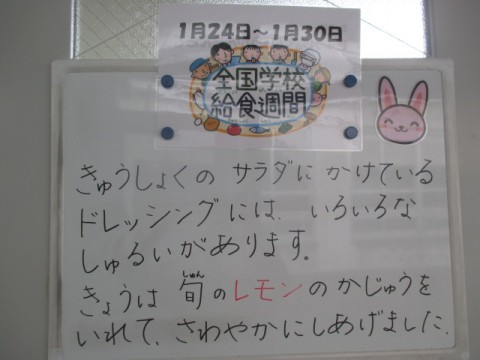 1月24日～1月30日
全国学校
給食週間
きゅうしょくの サラダに かけている
ドレッシングには、いろいろな
しゅるいがあります。
きょうは 旬(しゅん)のレモンのかじゅうを
いれて、さわやかにしあげました。